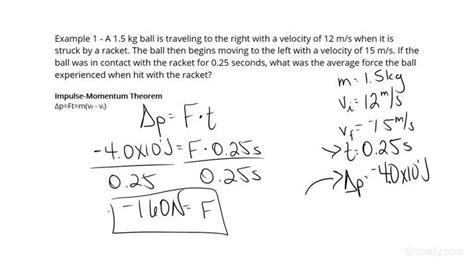 Example 1 - A 1.5 kg ball is traveling to the right with a velocity of 12 m/s when it is
struck by a racket. The ball then begins moving to the left with a velocity of 15 m/s. If the
ball was in contact with the racket for 0.25 seconds, what was the average force the ball
experienced when hit with the racket?
Impulse-Momentum Theorem
Δp=Ft=m(vf - vi)
Δp = F·t
-4.0x10¹J = F·0.25s
0.25 0.25s
-160N = F
m=1.5kg
vi=12m/s
vf=-15m/s
→t=0.25s
→Δp=-4.0x10¹J
Study.com